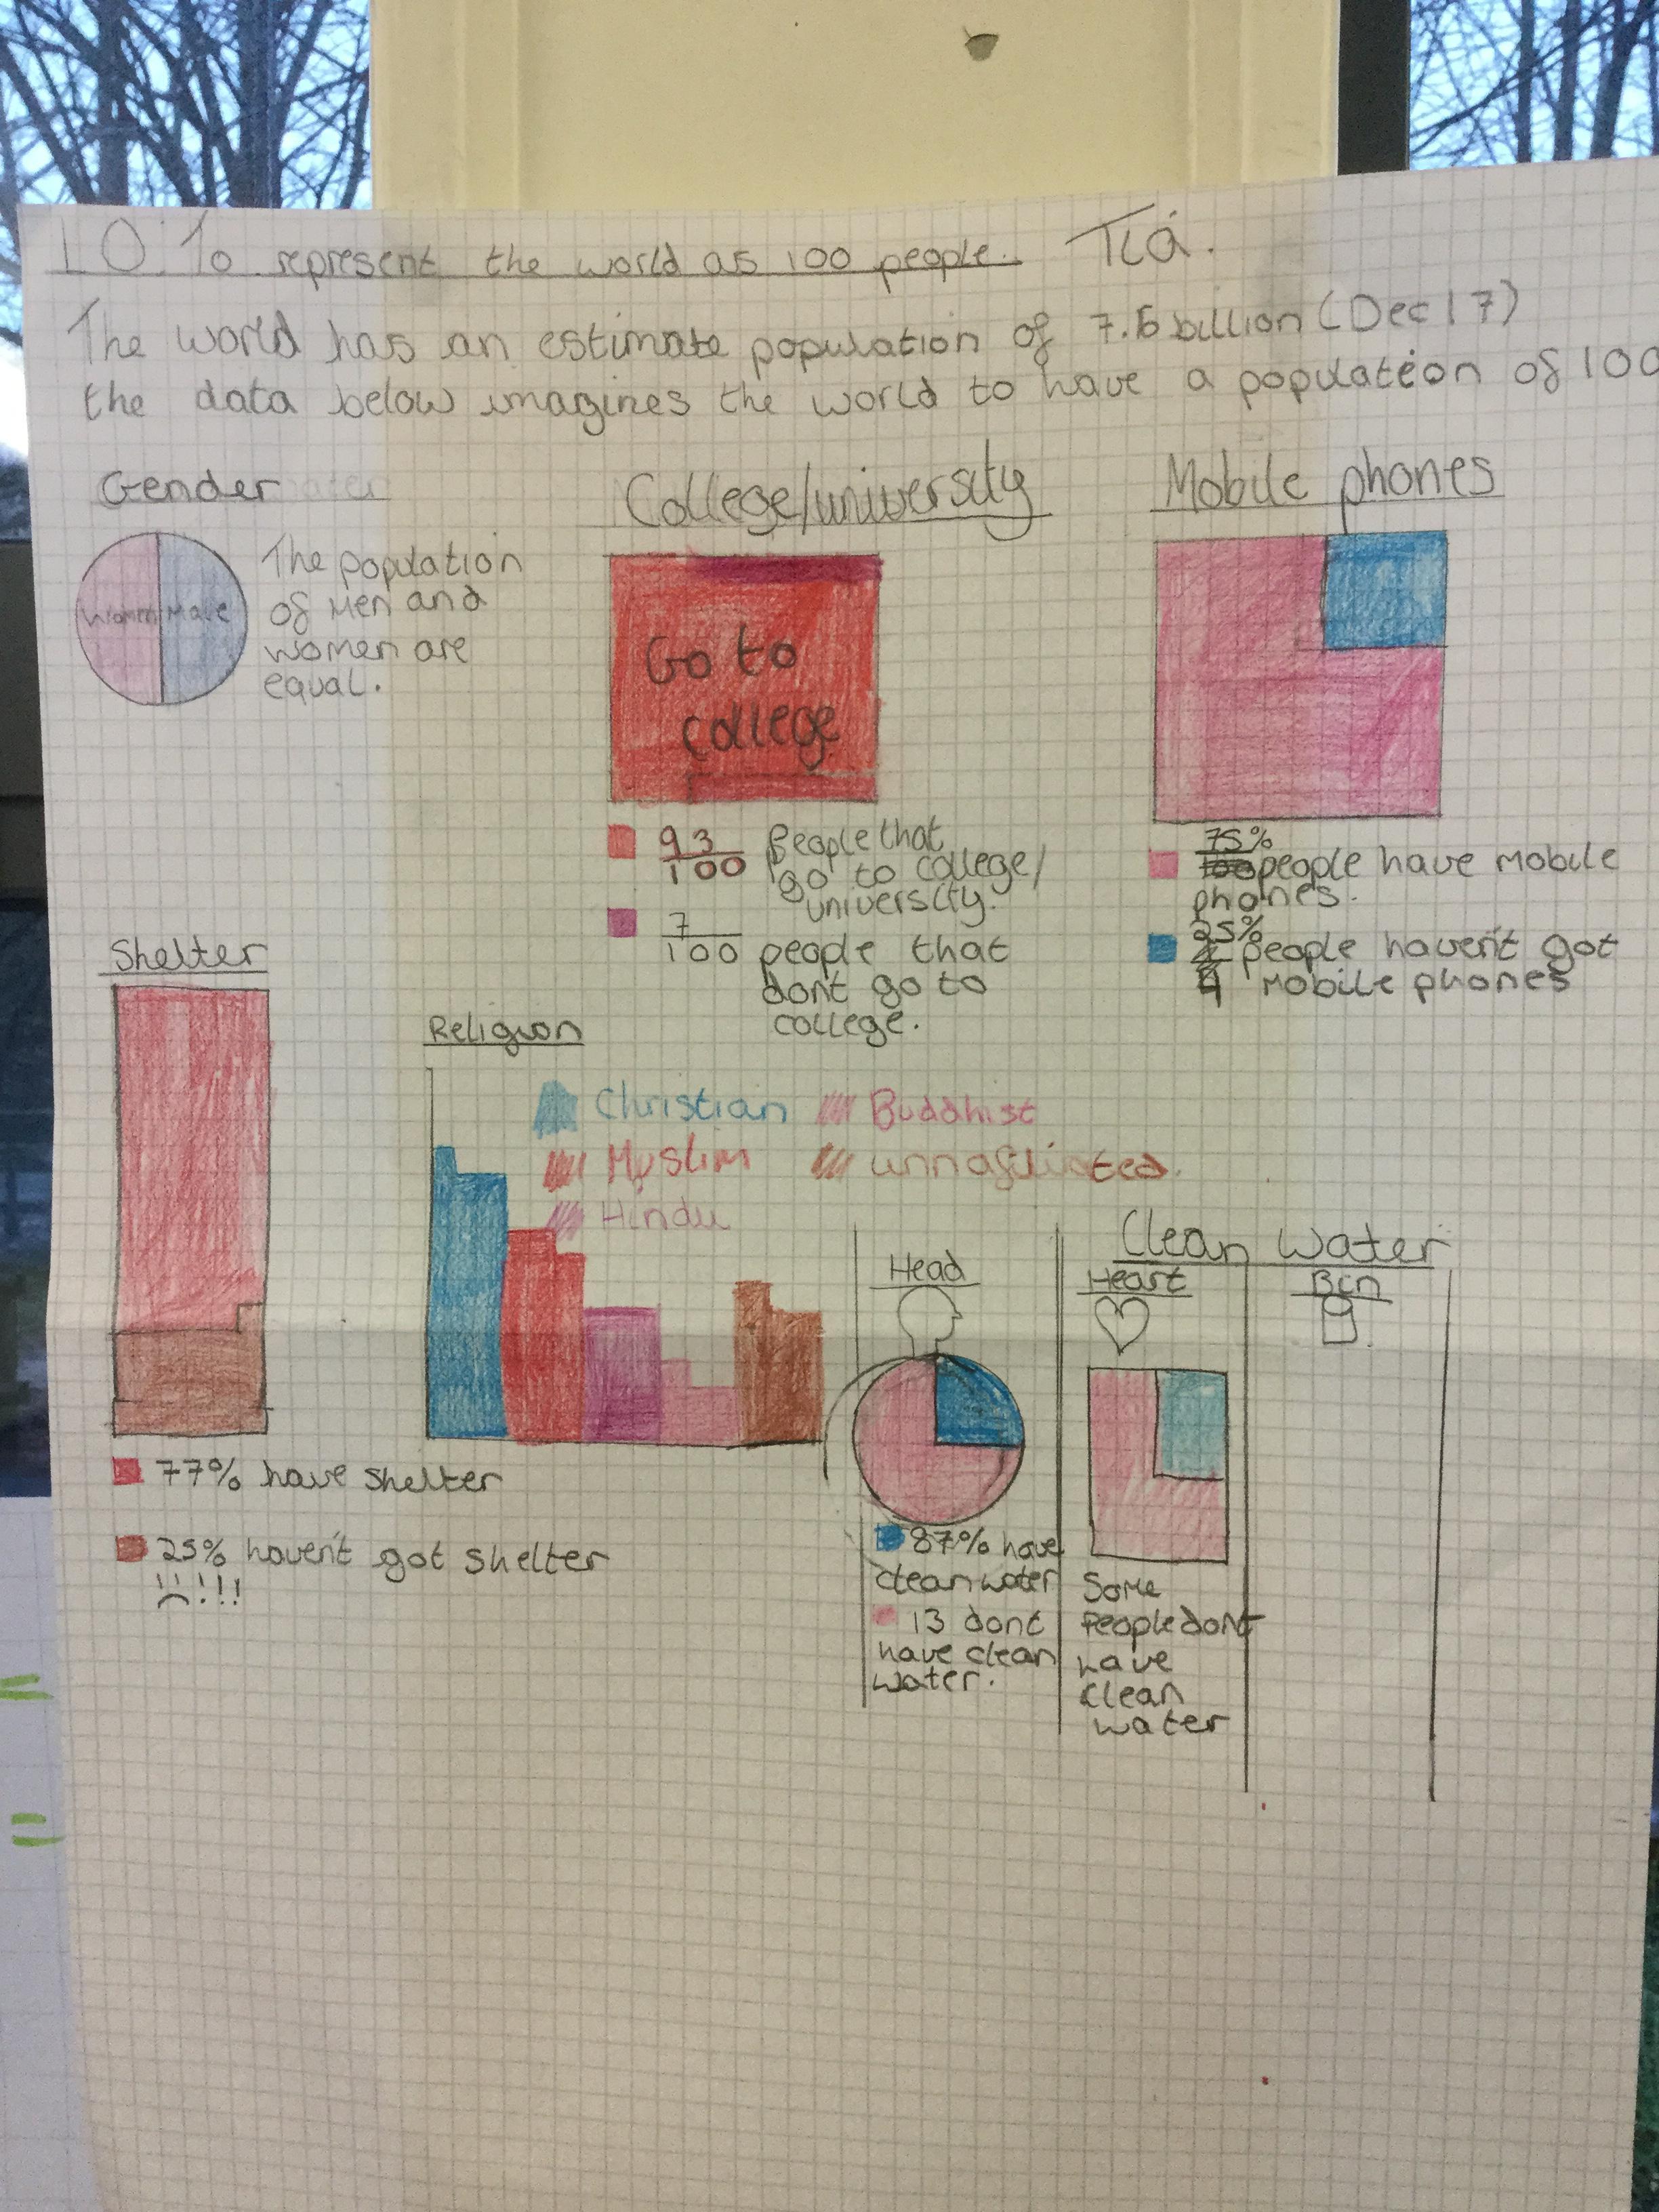 LO: To represent the world as 100 people. Tia.
The world has an estimate population of 7.6 billion (Dec 17)
the data below imagines the world to have a population of 100
Gender
Women Male
The population
of Men and
women are
equal.
College/university
Go to
college
93/100 People that
go to college/
university.
7/100 people that
dont go to
college.
Mobile phones
75%
people have mobile
phones.
25%
people haven't got
mobile phones
Shelter
77% have shelter
25% haven't got shelter
!!!
Religion
Christian Buddhist
Muslim unnafiliated.
Hindu
Clean Water
Head
87% have
clean water
13 dont
have clean
water.
Heart
Some
People dont
have
clean
water
Bin